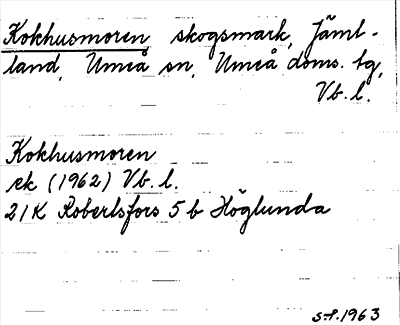 Kokhusmoren, skogsmark, Jämt-
land, Umeå sn, Umeå doms. tg,
Vb. l.
Kokhusmoren
ek (1962) Vb. l.
21K Robertsfors 5 b Höglunda
s.f. 1963